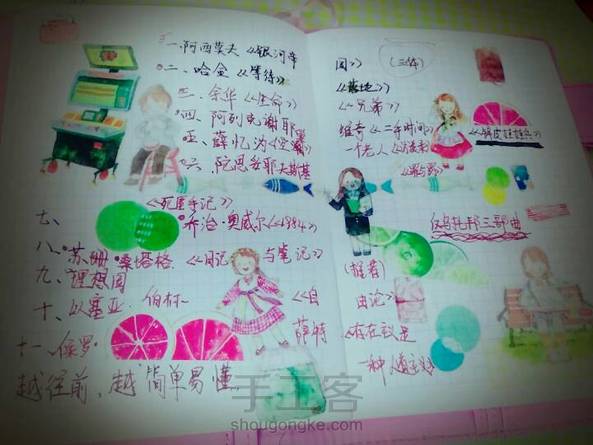 一、阿西莫夫《银河帝国》（三体）
二、哈金《等待》《落地》
三、余华《生命》《兄弟》
四、阿列克谢耶维奇《二手时间》
五、薛忆沩《空巢》一个老人
六、陀思妥耶夫斯基《罪与罚》
《死屋手记》
七、乔治·奥威尔《1984》反乌托邦三部曲
八、苏珊·桑塔格《日记与笔记》
九、理想国（推荐）
十、以塞亚·伯林《自由论》
十一、保罗 萨特《存在就是一种人道主义》
越往前、越简单易懂
手工客
shougongke.com